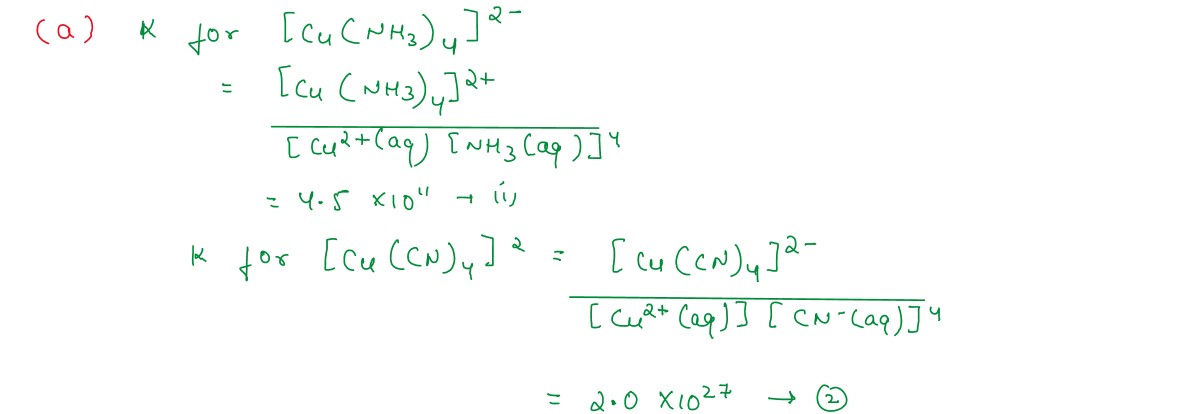 (a) K for [Cu(NH3)4]²⁻
= [Cu(NH3)4]²⁺
[Cu²⁺(aq) [NH3(aq)]⁴
= 4.5 ×10¹¹ → ii)
K for [Cu(CN)4]² = [Cu(CN)4]²⁻
[Cu²⁺(aq)] [CN⁻(aq)]⁴
= 2.0 ×10²⁷ → ②